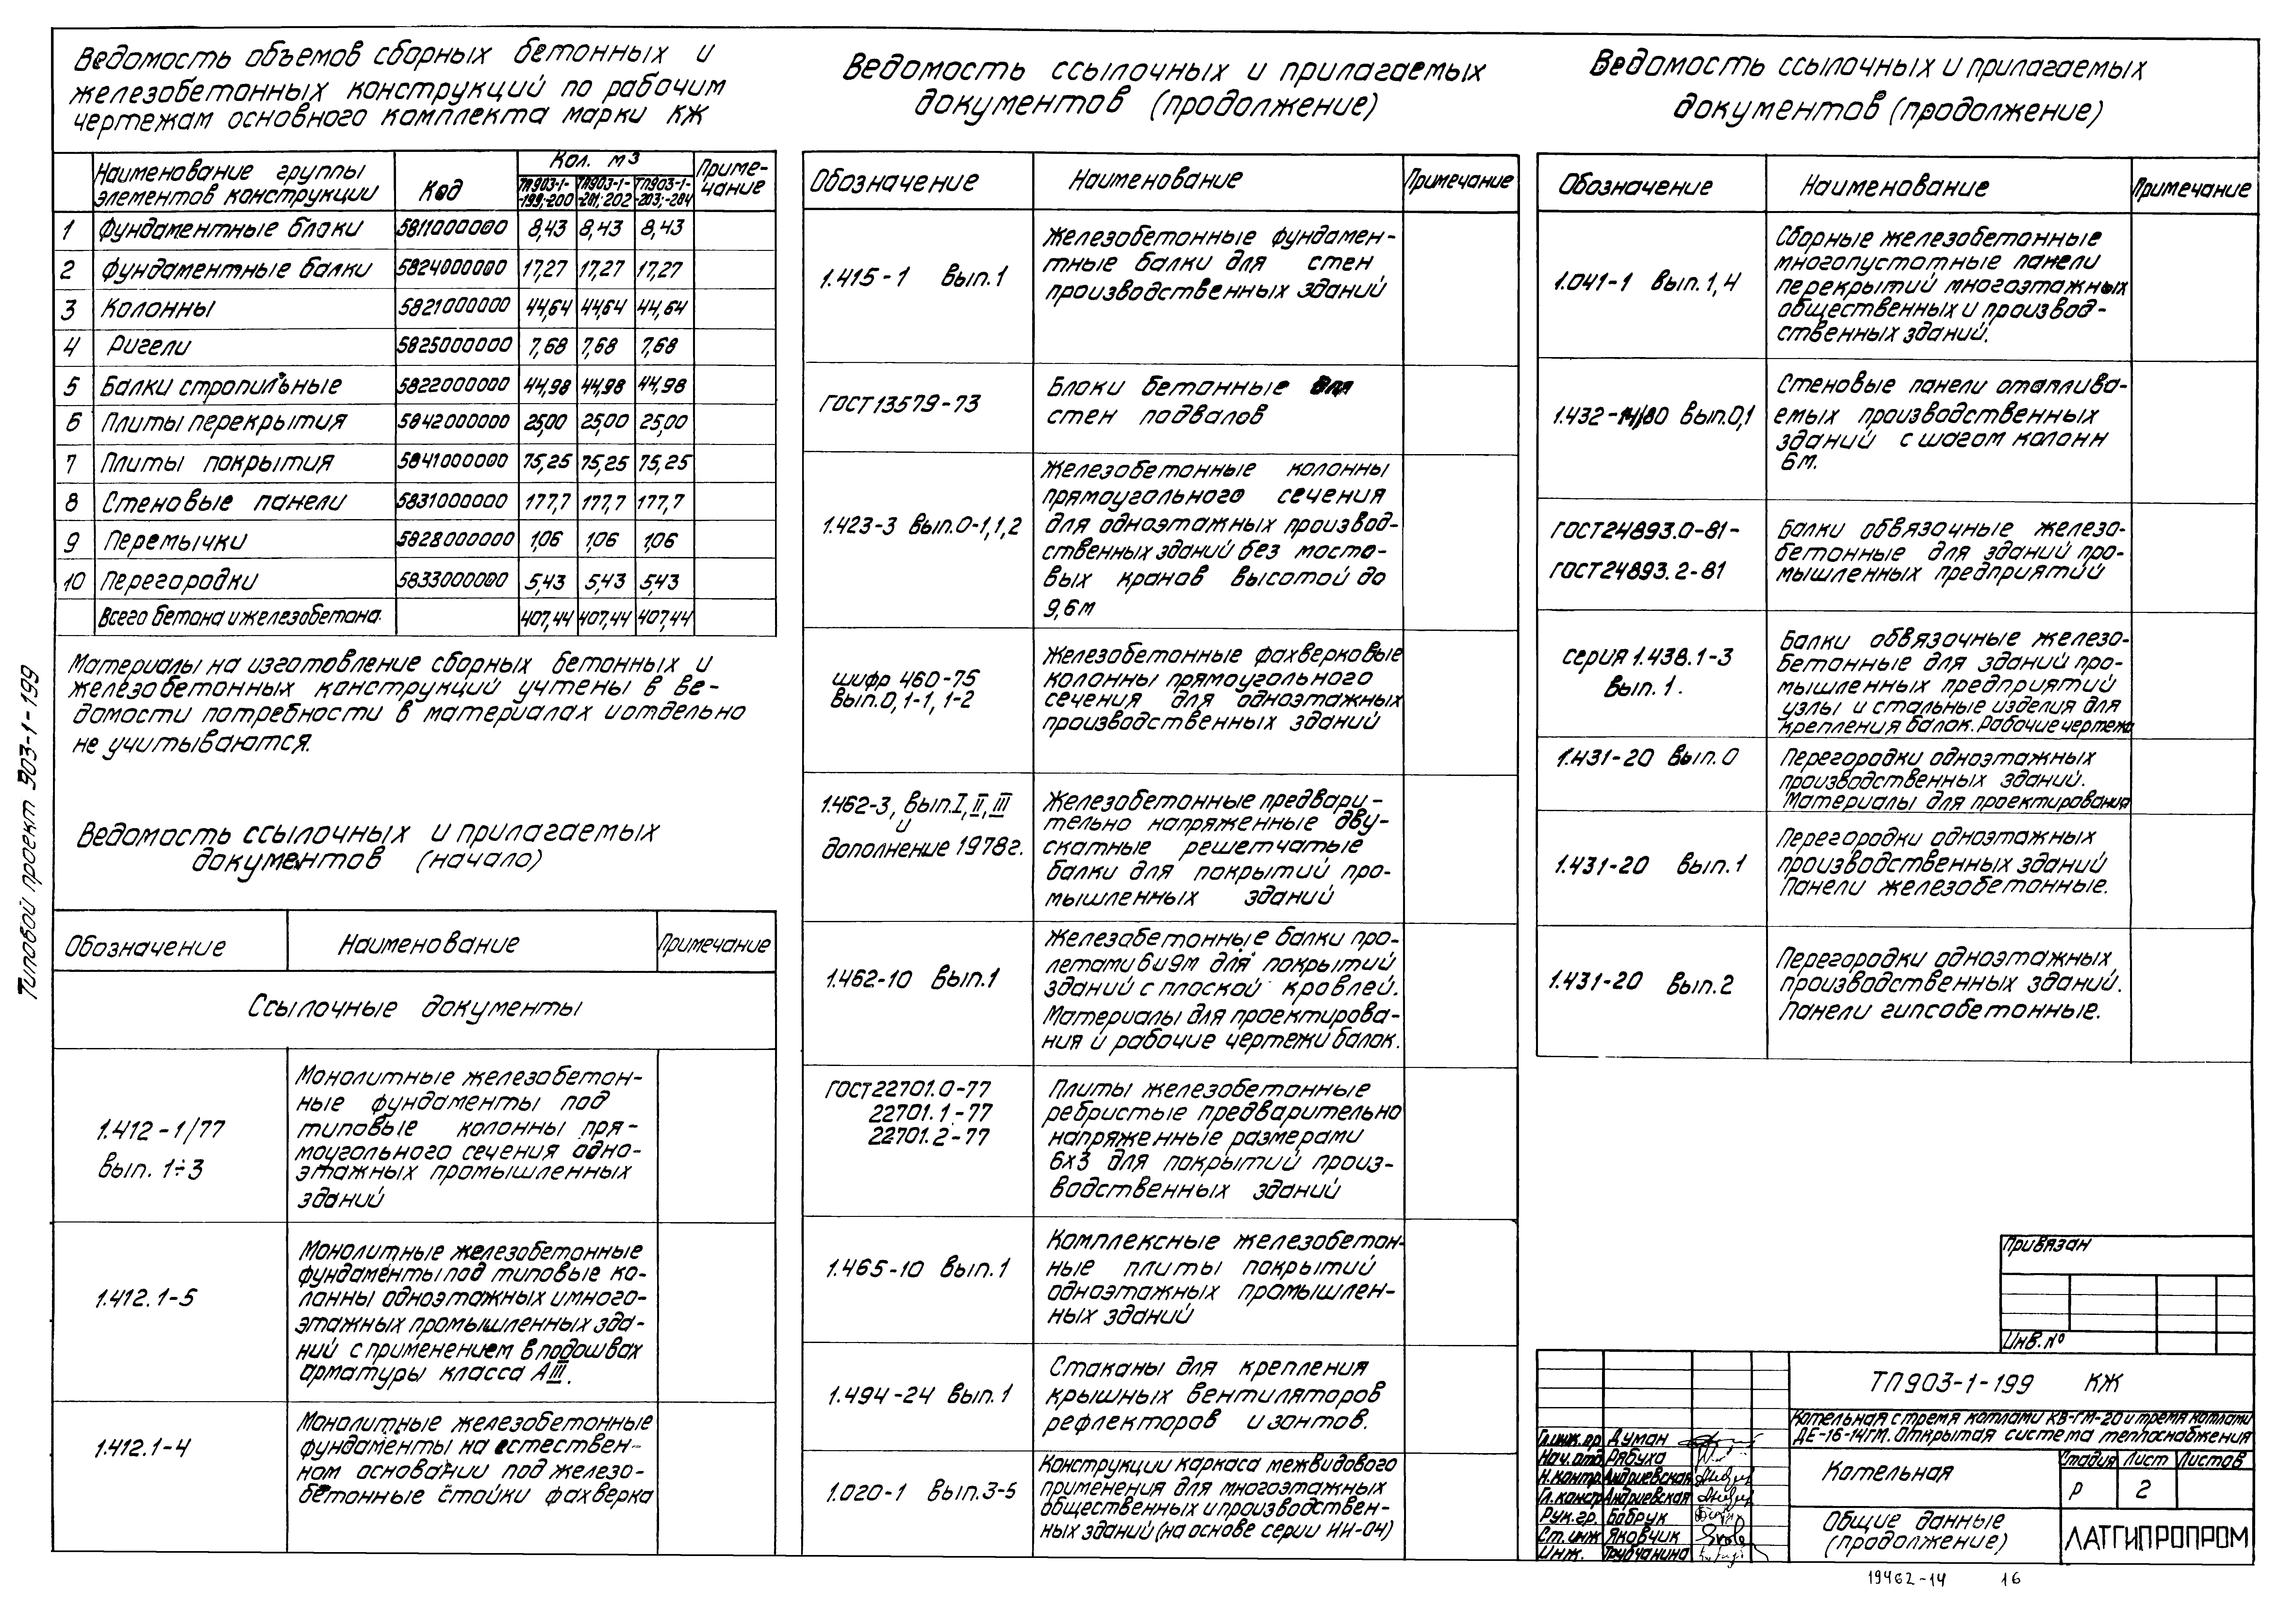 Ведомость объемов сборных бетонных и
железобетонных конструкций по рабочим
чертежам основного комплекта марки КЖ
Наименование группы элементов конструкции Код Кол. м3 Приме-чание
ТП903-1-199;-200 ТП903-1-201;-202 ТП903-1-203;-204
1 Фундаментные блоки 5811000000 8,43 8,43 8,43
2 Фундаментные балки 5824000000 17,27 17,27 17,27
3 Колонны 5821000000 44,64 44,64 44,64
4 Ригели 5825000000 7,68 7,68 7,68
5 Балки стропильные 5822000000 44,98 44,98 44,98
6 Плиты перекрытия 5842000000 25,00 25,00 25,00
7 Плиты покрытия 5841000000 75,25 75,25 75,25
8 Стеновые панели 5831000000 177,7 177,7 177,7
9 Перемычки 5828000000 1,06 1,06 1,06
10 Перегородки 5833000000 5,43 5,43 5,43
Всего бетона и железобетона. 407,44 407,44 407,44
Материалы на изготовление сборных бетонных и
железобетонных конструкций учтены в ве-
домости потребности в материалах и отдельно
не учитываются.
Ведомость ссылочных и прилагаемых
документов (начало)
Обозначение Наименование Примечание
Ссылочные документы
1.412-1/77
вып. 1÷3
Монолитные железобетон-
ные фундаменты под
типовые колонны пря-
моугольного сечения одно-
этажных промышленных
зданий
1.412.1-5
Монолитные железобетонные
фундаменты под типовые ко-
лонны одноэтажных и много-
этажных промышленных зда-
ний с применением в подошвах
арматуры класса АIII.
1.412.1-4
Монолитные железобетонные
фундаменты на естествен-
ном основании под железо-
бетонные стойки фахверка
Ведомость ссылочных и прилагаемых
документов (продолжение)
Обозначение Наименование Примечание
1.415-1 вып.1
Железобетонные фундамен-
тные балки для стен
производственных зданий
ГОСТ 13579-73
Блоки бетонные для
стен подвалов
1.423-3 вып.0-1,1,2
Железобетонные колонны
прямоугольного сечения
для одноэтажных производ-
ственных зданий без мосто-
вых кранов высотой до
9,6м
шифр 460-75
вып.0, 1-1, 1-2
Железобетонные фахверковые
колонны прямоугольного
сечения для одноэтажных
производственных зданий
1.462-3, вып.I, II, III
и
дополнение 1978г.
Железобетонные предвари-
тельно напряженные дву-
скатные решетчатые
балки для покрытий про-
мышленных зданий
1.462-10 вып.1
Железобетонные балки про-
летами 6 и 9м для покрытий
зданий с плоской кровлей.
Материалы для проектирова-
ния и рабочие чертежи балок.
ГОСТ 22701.0-77
22701.1-77
22701.2-77
Плиты железобетонные
ребристые предварительно
напряженные размерами
6х3 для покрытий произ-
водственных зданий
1.465-10 вып.1
Комплексные железобетон-
ные плиты покрытий
одноэтажных промышлен-
ных зданий
1.494-24 вып.1
Стаканы для крепления
крышных вентиляторов
рефлекторов и зонтов.
1.020-1 вып.3-5
Конструкции каркаса межвидового
применения для многоэтажных
общественных и производствен-
ных зданий (на основе серии ИИ-04)
Ведомость ссылочных и прилагаемых
документов (продолжение)
Обозначение Наименование Примечание
1.041-1 вып.1,4
Сборные железобетонные
многопустотные панели
перекрытий многоэтажных
общественных и производ-
ственных зданий.
вып.0,1
Стеновые панели отаплива-
емых производственных
зданий с шагом колонн
6м.
ГОСТ 24893.0-81-
ГОСТ 24893.2-81
Балки обвязочные железо-
бетонные для зданий про-
мышленных предприятий
серия 1.438.1-3
вып. 1.
Балки обвязочные железо-
бетонные для зданий про-
мышленных предприятий
узлы и стальные изделия для
крепления балок. Рабочие чертежи
1.431-20 вып.0
Перегородки одноэтажных
производственных зданий.
Материалы для проектирования
1.431-20 вып.1
Перегородки одноэтажных
производственных зданий
Панели железобетонные.
1.431-20 вып.2
Перегородки одноэтажных
производственных зданий.
Панели гипсобетонные.
Привязан
Инв.№
ТП903-1-199 КЖ
Котельная с тремя котлами КВ-ГМ-20 и тремя котлами
ДЕ-16-14ГМ. Открытая система теплоснабжения
Гл.инж.пр Думан
Нач.отд Рябуха
Н.контр. Андриевская
Гл.констр Андриевская
Рук.гр. Бобрук
Ст.инж Яковчик
Инж. Трубчанина
Котельная
Стадия Лист Листов
Р 2
Общие данные
(продолжение)
ЛАТГИПРОПРОМ
19462-14 16
Типовой проект 903-1-199